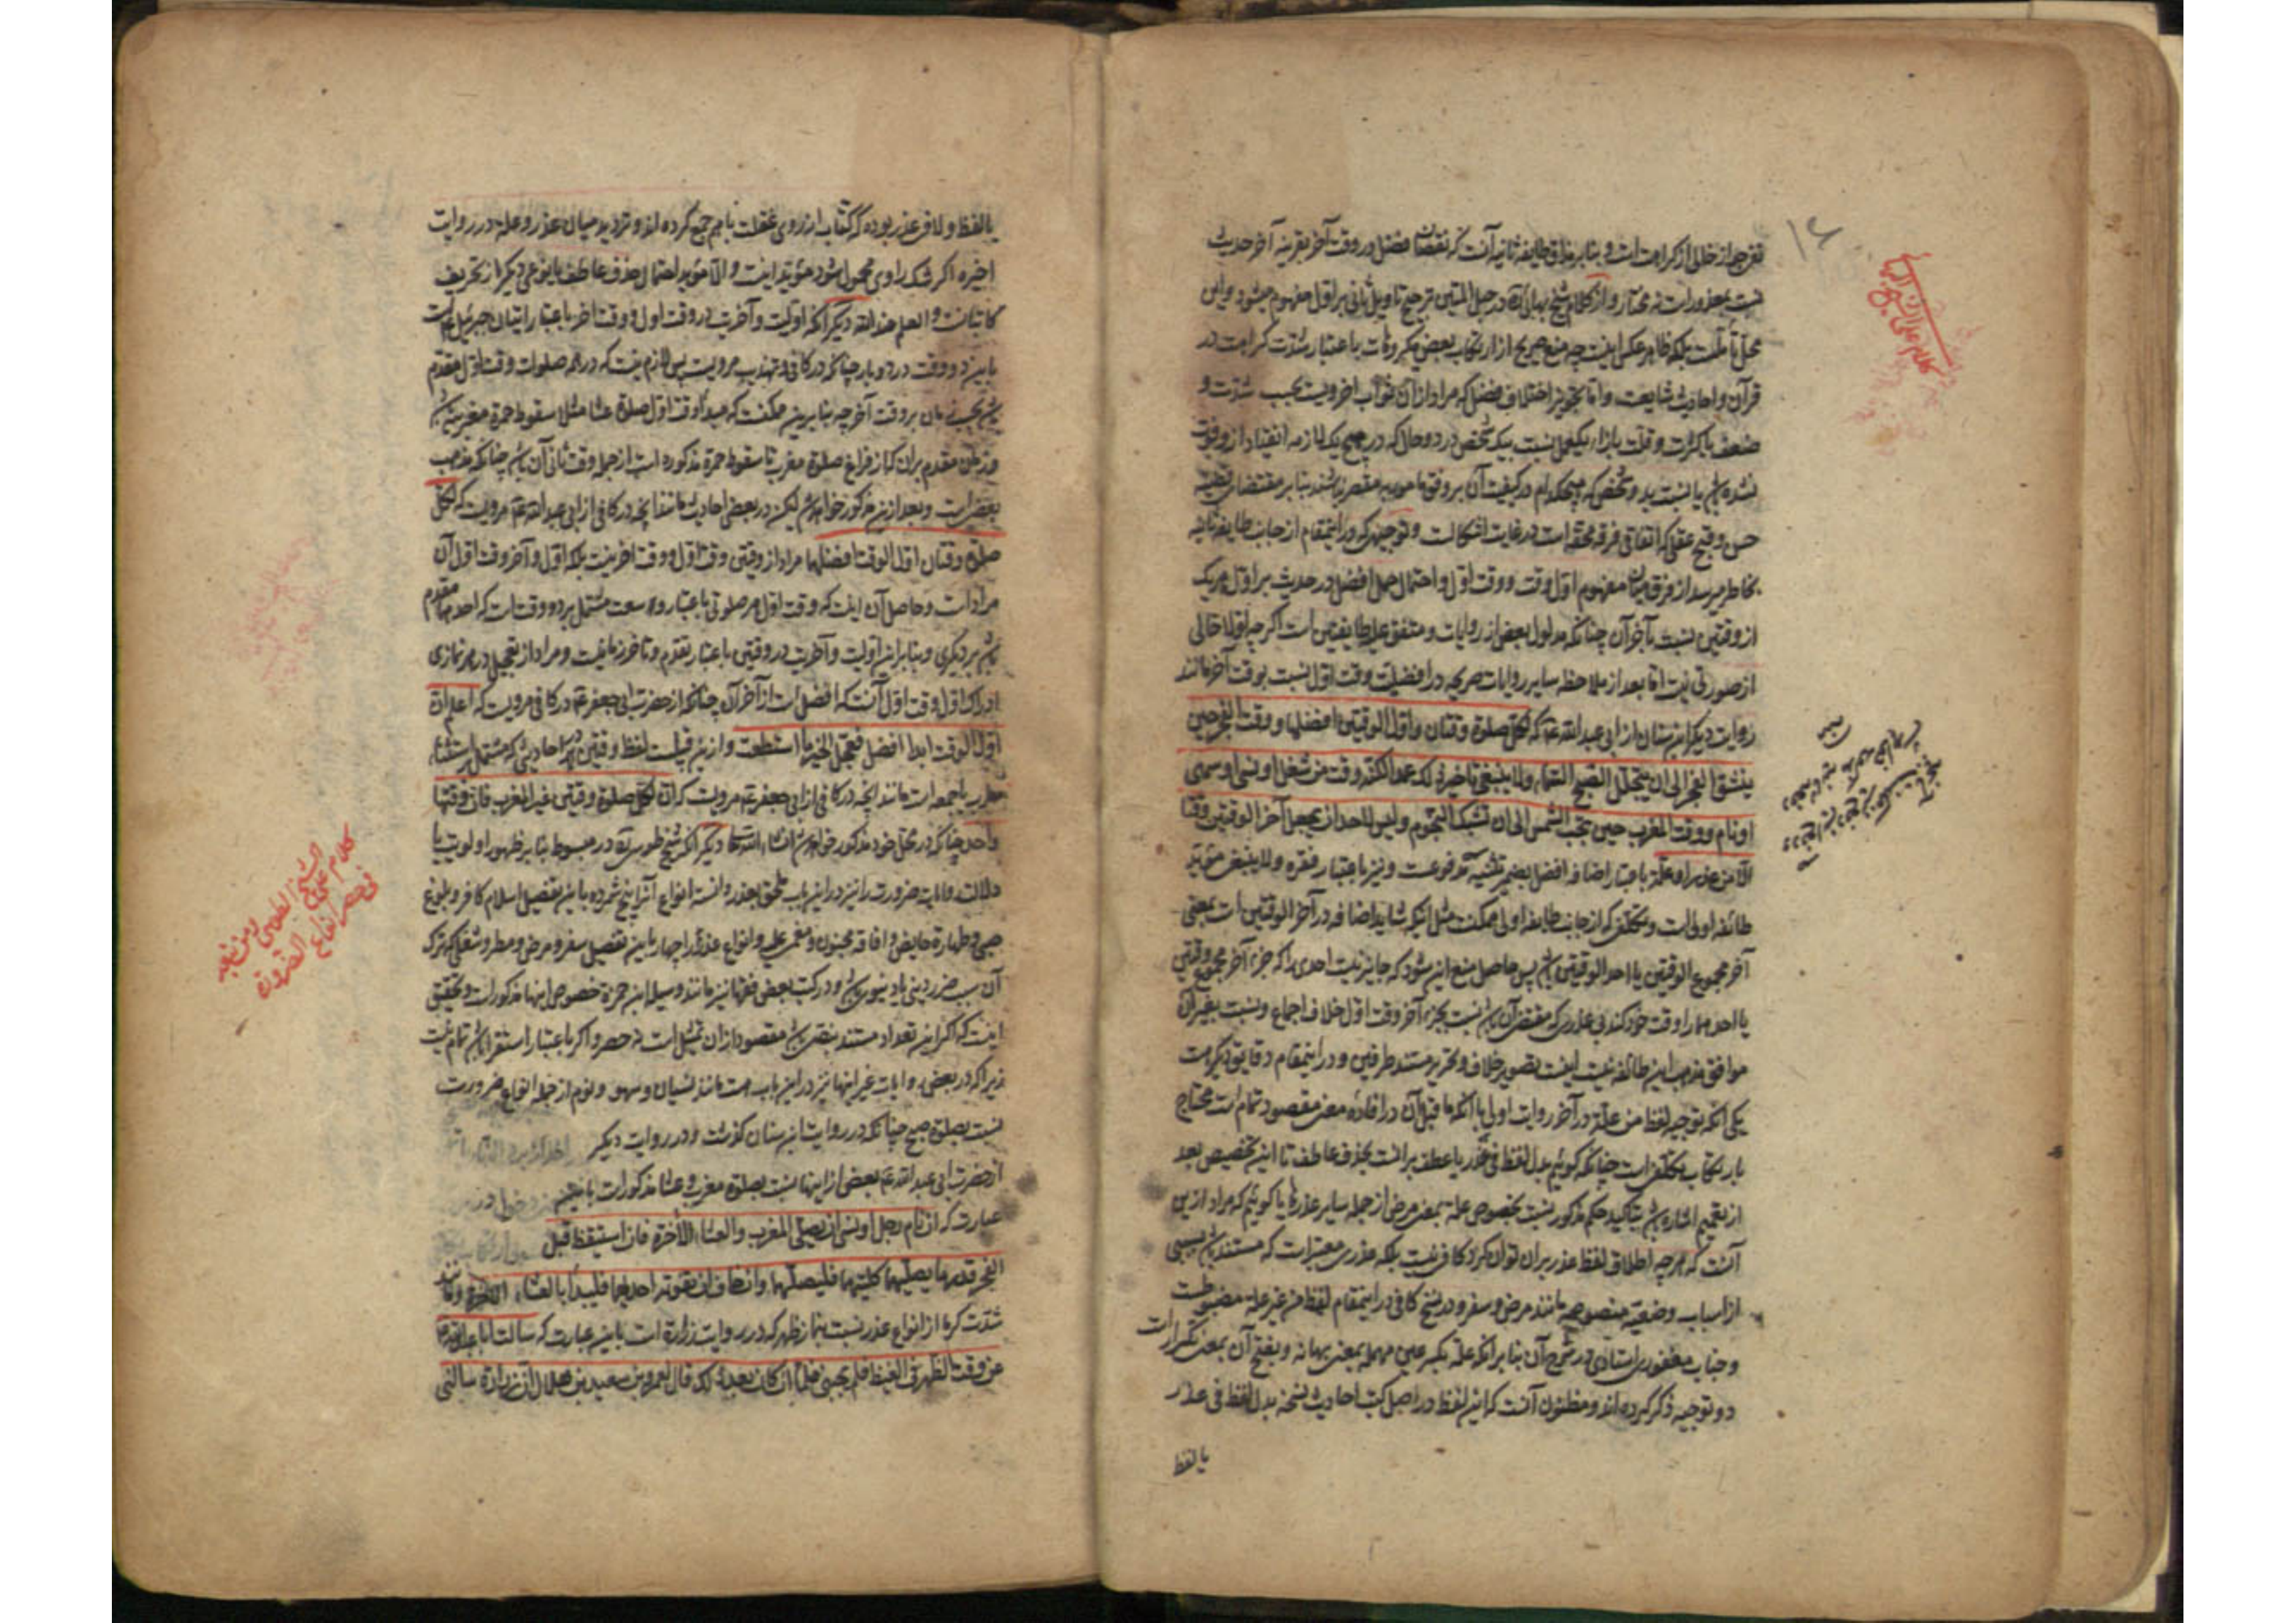 تفرجی از خللی از کراهت است و بنا بر مذاق طایفه ثانیه آنست که نقصان فضل در وقت آخر بقرینه آخر حدیث
نسبت بمعذورست نه مختار و از کلام شیخ بهائی ره در حبل المتین ترجیح تاویل ثانی بر اول مفهوم میشود و این
محل تأملست بلکه ظاهر عکس اینست چه منع صریح از ارتکاب بعض مکروهات باعتبار شدت کراهت در
قرآن و احادیث شایعست و اما تجویز اختلاف فضل که مراد از آن ثواب اخرویست بحسب شدت و
ضعف یا کثرت و قلت بازاء یکعمل نسبت بیک شخص در دو حال که در هیچ یک لازمه انقیاد از و فوت
نشده باشد یا نسبت بدو شخص که هیچکدام در کیفیت آن بر وفق مامور به مقصر نباشند بنا بر مقتضای قضیه
حسن و قبح عقلی که اتفاقی فرقه محقه است در غایت اشکالست و توجیهی که در اینمقام از جانب طایفه ثانیه
بخاطر میرسد از فرق میان مفهوم اول وقت و وقت اول و احتمال حمل افضل در حدیث بر اول هر یک
از وقتین نسبت بآخر آن چنانکه مدلول بعض از روایات و متفق علیه طایفتین است اگر چه اولا خالی
از صورتی نیست اما بعد از ملاحظه سایر روایات صریحه در افضلیت وقت اول نسبت بوقت آخر مانند
روایت دیگر ابن سنان از ابی عبدالله ع که لکل صلوة وقتان و اول الوقتین افضلهما و وقت الفجر حین
ینشق الفجر الی ان یتجلل الصبح السماء ولا ینبغی تاخیر ذلک عمدا لکنه وقت من شغل او نسی او سهی
او نام و وقت المغرب حین تجب الشمس الی ان تشتبک النجوم و لیس لاحد ان یجعل آخر الوقتین وقتا
الا من عذر او علة باعتبار اضافه افضل بضمیر تثنیه مدفوعست و نیز باعتبار فقره ولا ینبغی مؤید
طائفه اولی است و تکلفی که از جانب طایفه اولی ممکنست مثل آنکه شاید اضافه در آخر الوقتین است بمعنی
آخر مجموع الوقتین یا احد الوقتین باشد پس حاصل منع این شود که جایز نیست احدی را که جزء آخر مجموع وقتین
یا احدهما را وقت خود کند بی عذری که مقتضی آن باشد نسبت بجزء آخر وقت اول خلاف اجماع و نسبت بغیر آن
موافق مذهب این طائفه نیست اینست تصویر خلاف و تحریر مستند طرفین و در اینمقام دقایق دیگر هست
یکی آنکه توجیه لفظ من علة در آخر روایت اولی با آنکه ما قبل آن در افاده معنی مقصود تمام است محتاج
بارتکاب تکلفی است چنانکه گوئیم بدل لفظ فی عذر یا عطف بر انست بحذف عاطف تا این تخصیص بعد
از تعمیم اشاره باشد بتاکید حکم مذکور نسبت بخصوص علة بمعنی مرض از جمله سایر عذرها یا گوئیم که مراد ازین
آنست که هر چه اطلاق لفظ عذر بران توان کرد کافی نیست بلکه عذری معتبر است که مستند باشد بسببی
از اسباب وضعیه منصوصه مانند مرض و سفر و در نسخ کافی در اینمقام لفظ من غیر علة مضبوطست
و جناب مغفوری استادی در شرح آن بنا بر انکه علة بکسر عین مهمله بمعنی بهانه و بفتح آن بمعنی تکرار است
دو توجیه ذکر کرده اند و مظنون آنست که این لفظ در اصل کتب احادیث نسخه بدل لفظ فی عذر
یا لفظ
یا لفظ ولا فی عذر بوده که کتاب از روی غفلت با هم جمع کرده اند و تردید میان عذر و علة در روایت
اخیره اگر شک راوی محمول شود مؤید اینست والا مؤید احتمال حذف عاطف یا نوعی دیگر از تحریف
کاتبانست و العلم عند الله دیگر آنکه اولیت و آخریت در وقت اول و وقت اخر باعتبار اتیان جبرئیل است
باین دو وقت در دو بار چنانکه در کافی و تهذیب مرویست پس لازم نیست که در همه صلوات وقت اول مقدم
باشد بحسب زمان بر وقت آخر چه بنا برین ممکنست که مبدا وقت اول صلوة عشا مثلا سقوط حمره مغربیه باشد
و زمان مقدم بران که از فراغ صلوة مغرب تا سقوط حمره مذکوره است از جمله وقت ثانی آن باشد چنانکه مذهب
بعض است و بعد ازین مذکور خواهد شد لیکن در بعضی احادیث مانند آنچه در کافی از ابی عبدالله ع مرویست که لکل
صلوة وقتان اول الوقت افضلهما مراد از وقتین وقت اول و وقت اخر نیست بلکه اول و آخر وقت اول آن
مراد است و حاصل آن اینست که وقت اول هر صلوتی باعتبار وسعت مشتمل بر دو وقت است که احدهما مقدم
باشد بر دیگری و بنا بران اولیت و آخریت در وقتین باعتبار تقدم و تاخر زمانیست و مراد از تعجیل در هر نمازی
ادراک اول وقت اول آنست که افضل است از آخر آن چنانکه از حضرت ابی جعفر ع در کافی مرویست که اعلم ان
اول الوقت ابدا افضل فعجل الخیر ما استطعت و ازین قبیلست لفظ وقتین در احادیثی که مشتمل بر استثناء
مغرب یا جمعه است مانند آنچه در کافی از ابی جعفر ع مرویست که ان لکل صلوة وقتین غیر المغرب فان وقتها
واحد چنانکه در محل خود مذکور خواهد شد انشاء الله تعالی دیگر آنکه شیخ طوسی ره در مبسوط بنا بر ظهور اولویت یا
دلالت روایات ضرورت را نیز درین باب ملحق بعذر دانسته انواع آنرا پنج شمرده باین تفصیل اسلام کافر و بلوغ
صبی و طهارة حایض و افاقه مجنون و مغمی علیه و انواع عذر را چهار باین تفصیل سفر و مرض و مطر و شغلی که ترک
آن سبب ضرر دینی یا دنیوی باشد و در کتب بعض فقها نیز مانند وسیله ابن حمزه خصوص اینها مذکور است و تحقیق
اینست که اگر این تعداد مستند بنقلی باشد مقصود از ان تمثیل است نه حصر و اگر باعتبار استقرا باشد تمام نیست
زیرا که در بعض روایات غیر اینها نیز درین باب هست مانند نسیان و سهو و نوم از جمله انواع ضرورت
نسبت بصلوة صبح چنانکه در روایت ابن سنان گذشت و در روایت دیگر
از حضرت ابی عبدالله ع بعض از اینها نسبت بصلوة مغرب و عشا مذکور است باین
عبارت که ان نام رجل او نسی ان یصلی المغرب و العشاء الآخرة فان استیقظ قبل
الفجر قدر ما یصلیهما کلتیهما فلیصلهما وان خاف ان تفوته احدیهما فلیبدا بالعشاء الآخرة و مانند
شدت گرما از انواع عذر نسبت بنماز ظهر که در روایت زراره است باین عبارت که سالت ابا عبدالله ع
عن وقت الظهر فی القیظ فلم یجبنی فلما ان کان بعد ذلک قال لعمرو بن سعید بن هلال ان زرارة سالنی
کلام علی الشیخ الطوسی و من تبعه
فی حصر انواع الضرورة